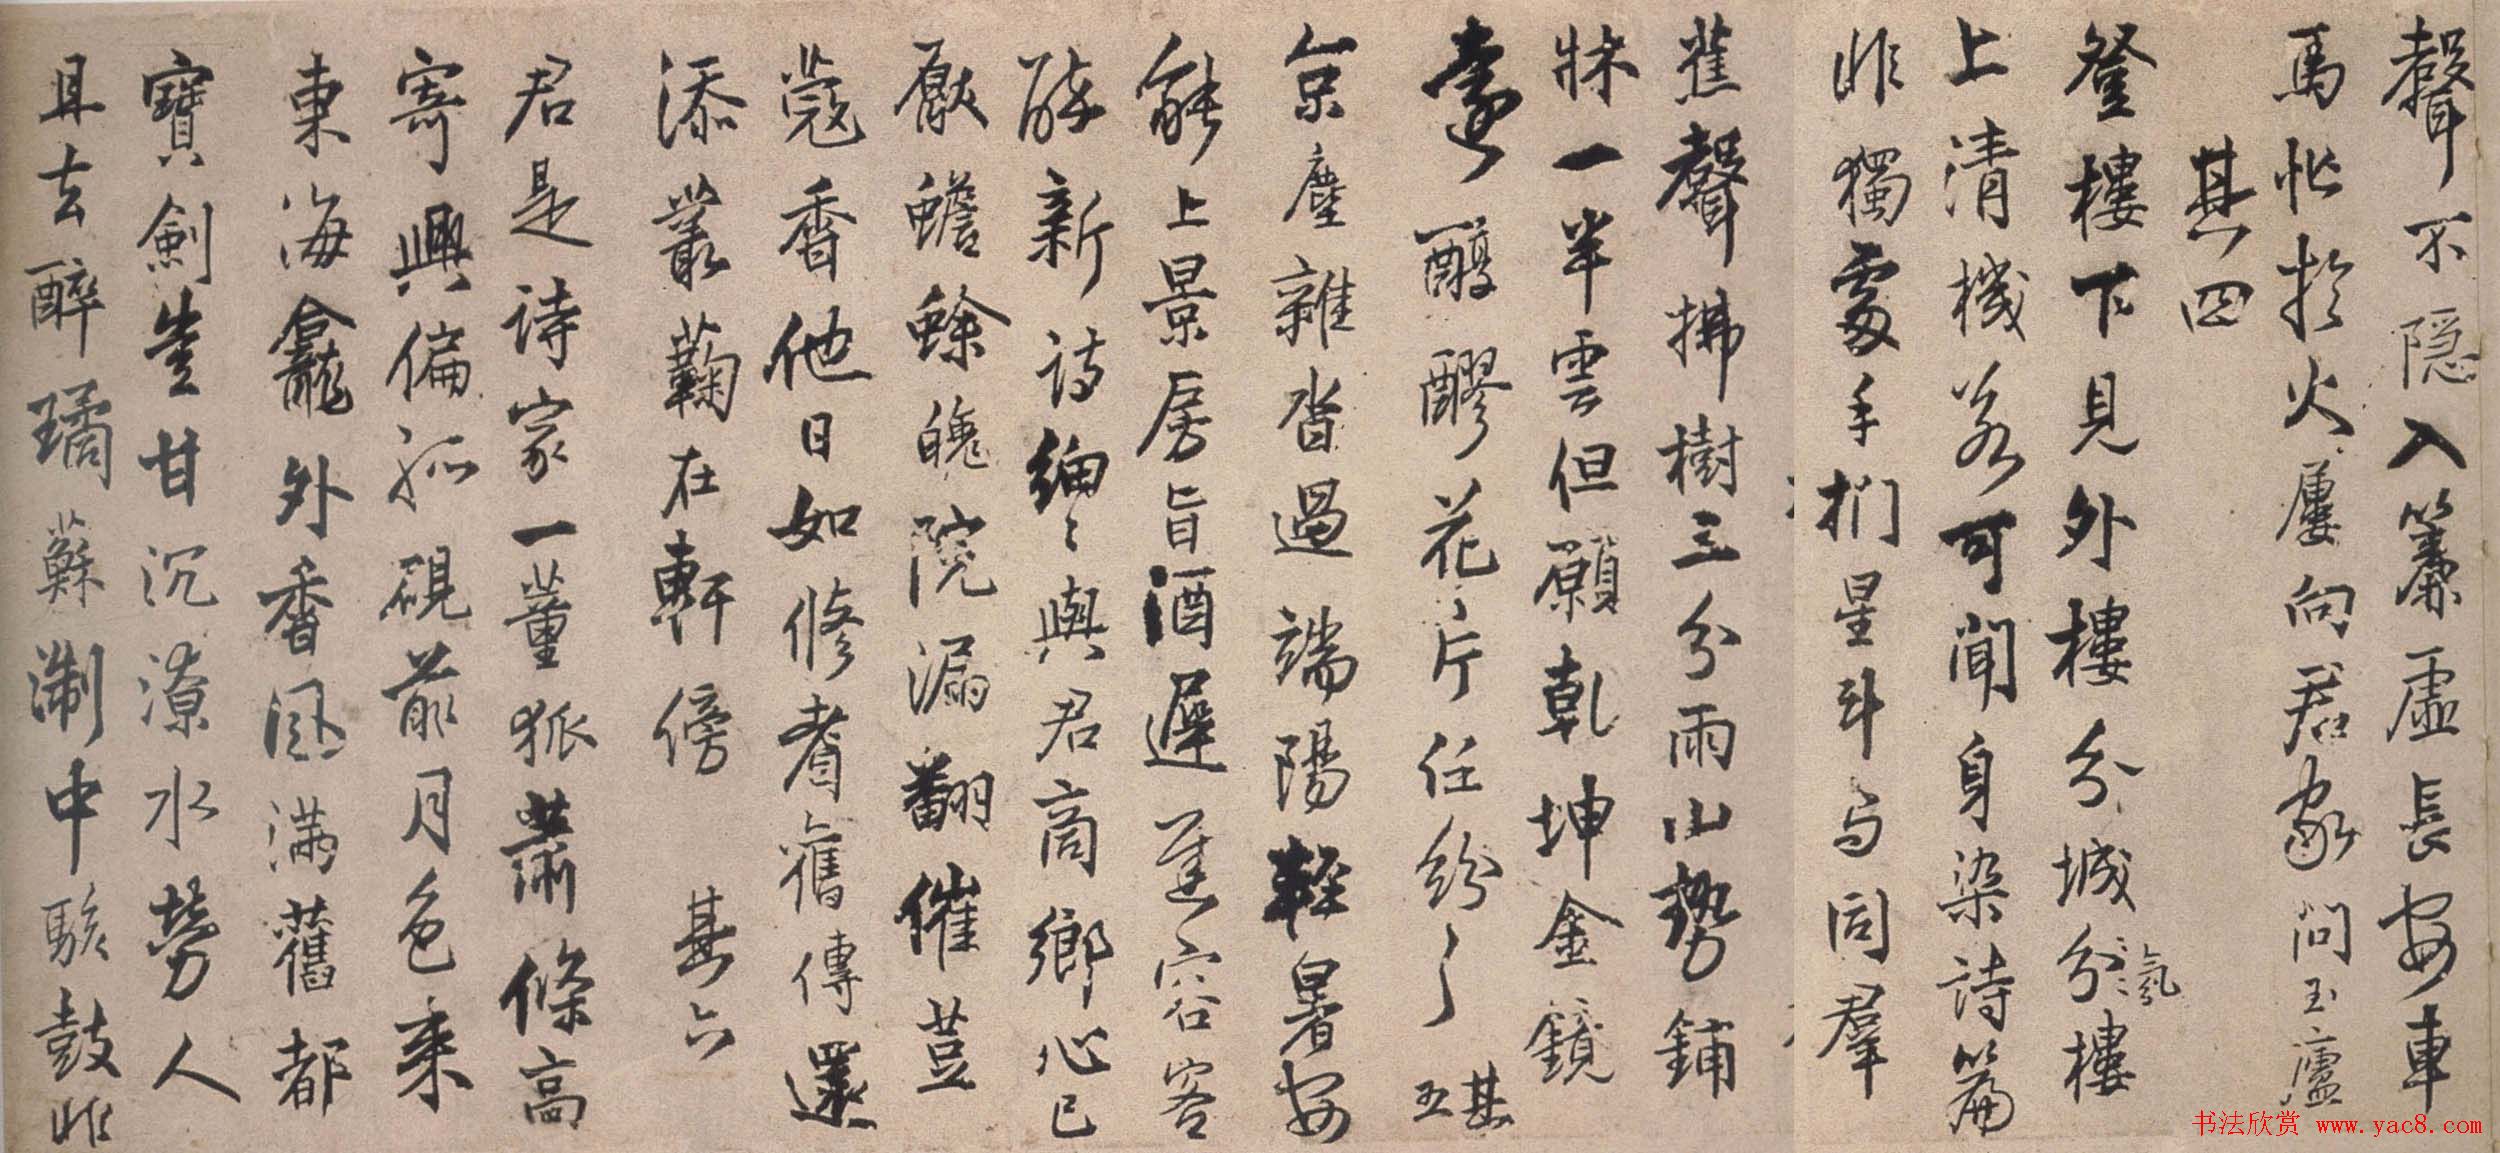 聲不隱入簾虛長安車
馬恠於火屢向君家問玉廬
其四
登樓下見外樓分城分樓
氣
上清機若可聞身染詩篇
非獨處手捫星斗与同羣
蕉聲拂樹三分雨山勢鋪
牀一半雲但願乾坤金鏡
裏醇醪花片任紛〻
其五
京塵雜沓過端陽輕暑安
能上景房旨酒遲遲容客
醉新詩細〻與君商鄉心已
厭蟾蜍魄院漏翻催荳
蔻香他日如修耆舊傳還
添叢鞠在軒傍
其六
君是詩家一董狐蕭條高
寄興偏孤硯前月色來
東海龕外香風满舊都
寶劍生甘沉潦水勞人
且去醉璚蘇淛中駭鼓非
书法欣赏 www.yac8.com